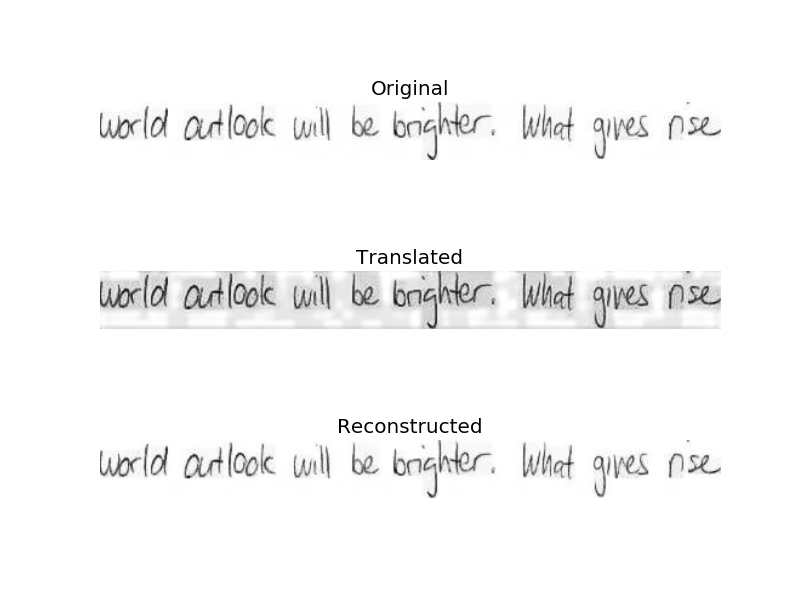 Original
world outlook will be brighter. What gives rise
Translated
world outlook will be brighter. What gives rise
Reconstructed
world outlook will be brighter. What gives rise